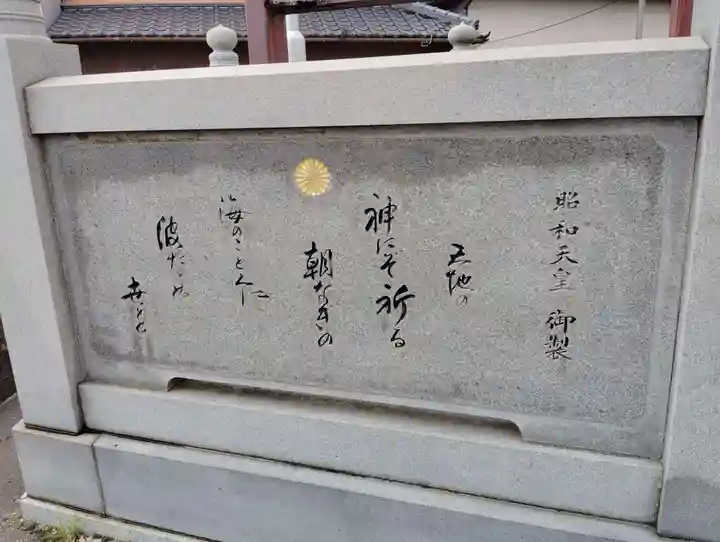 昭和天皇 御製
天地の
神にぞ祈る
朝なぎの
海のごとくに
波たゝぬ
世を